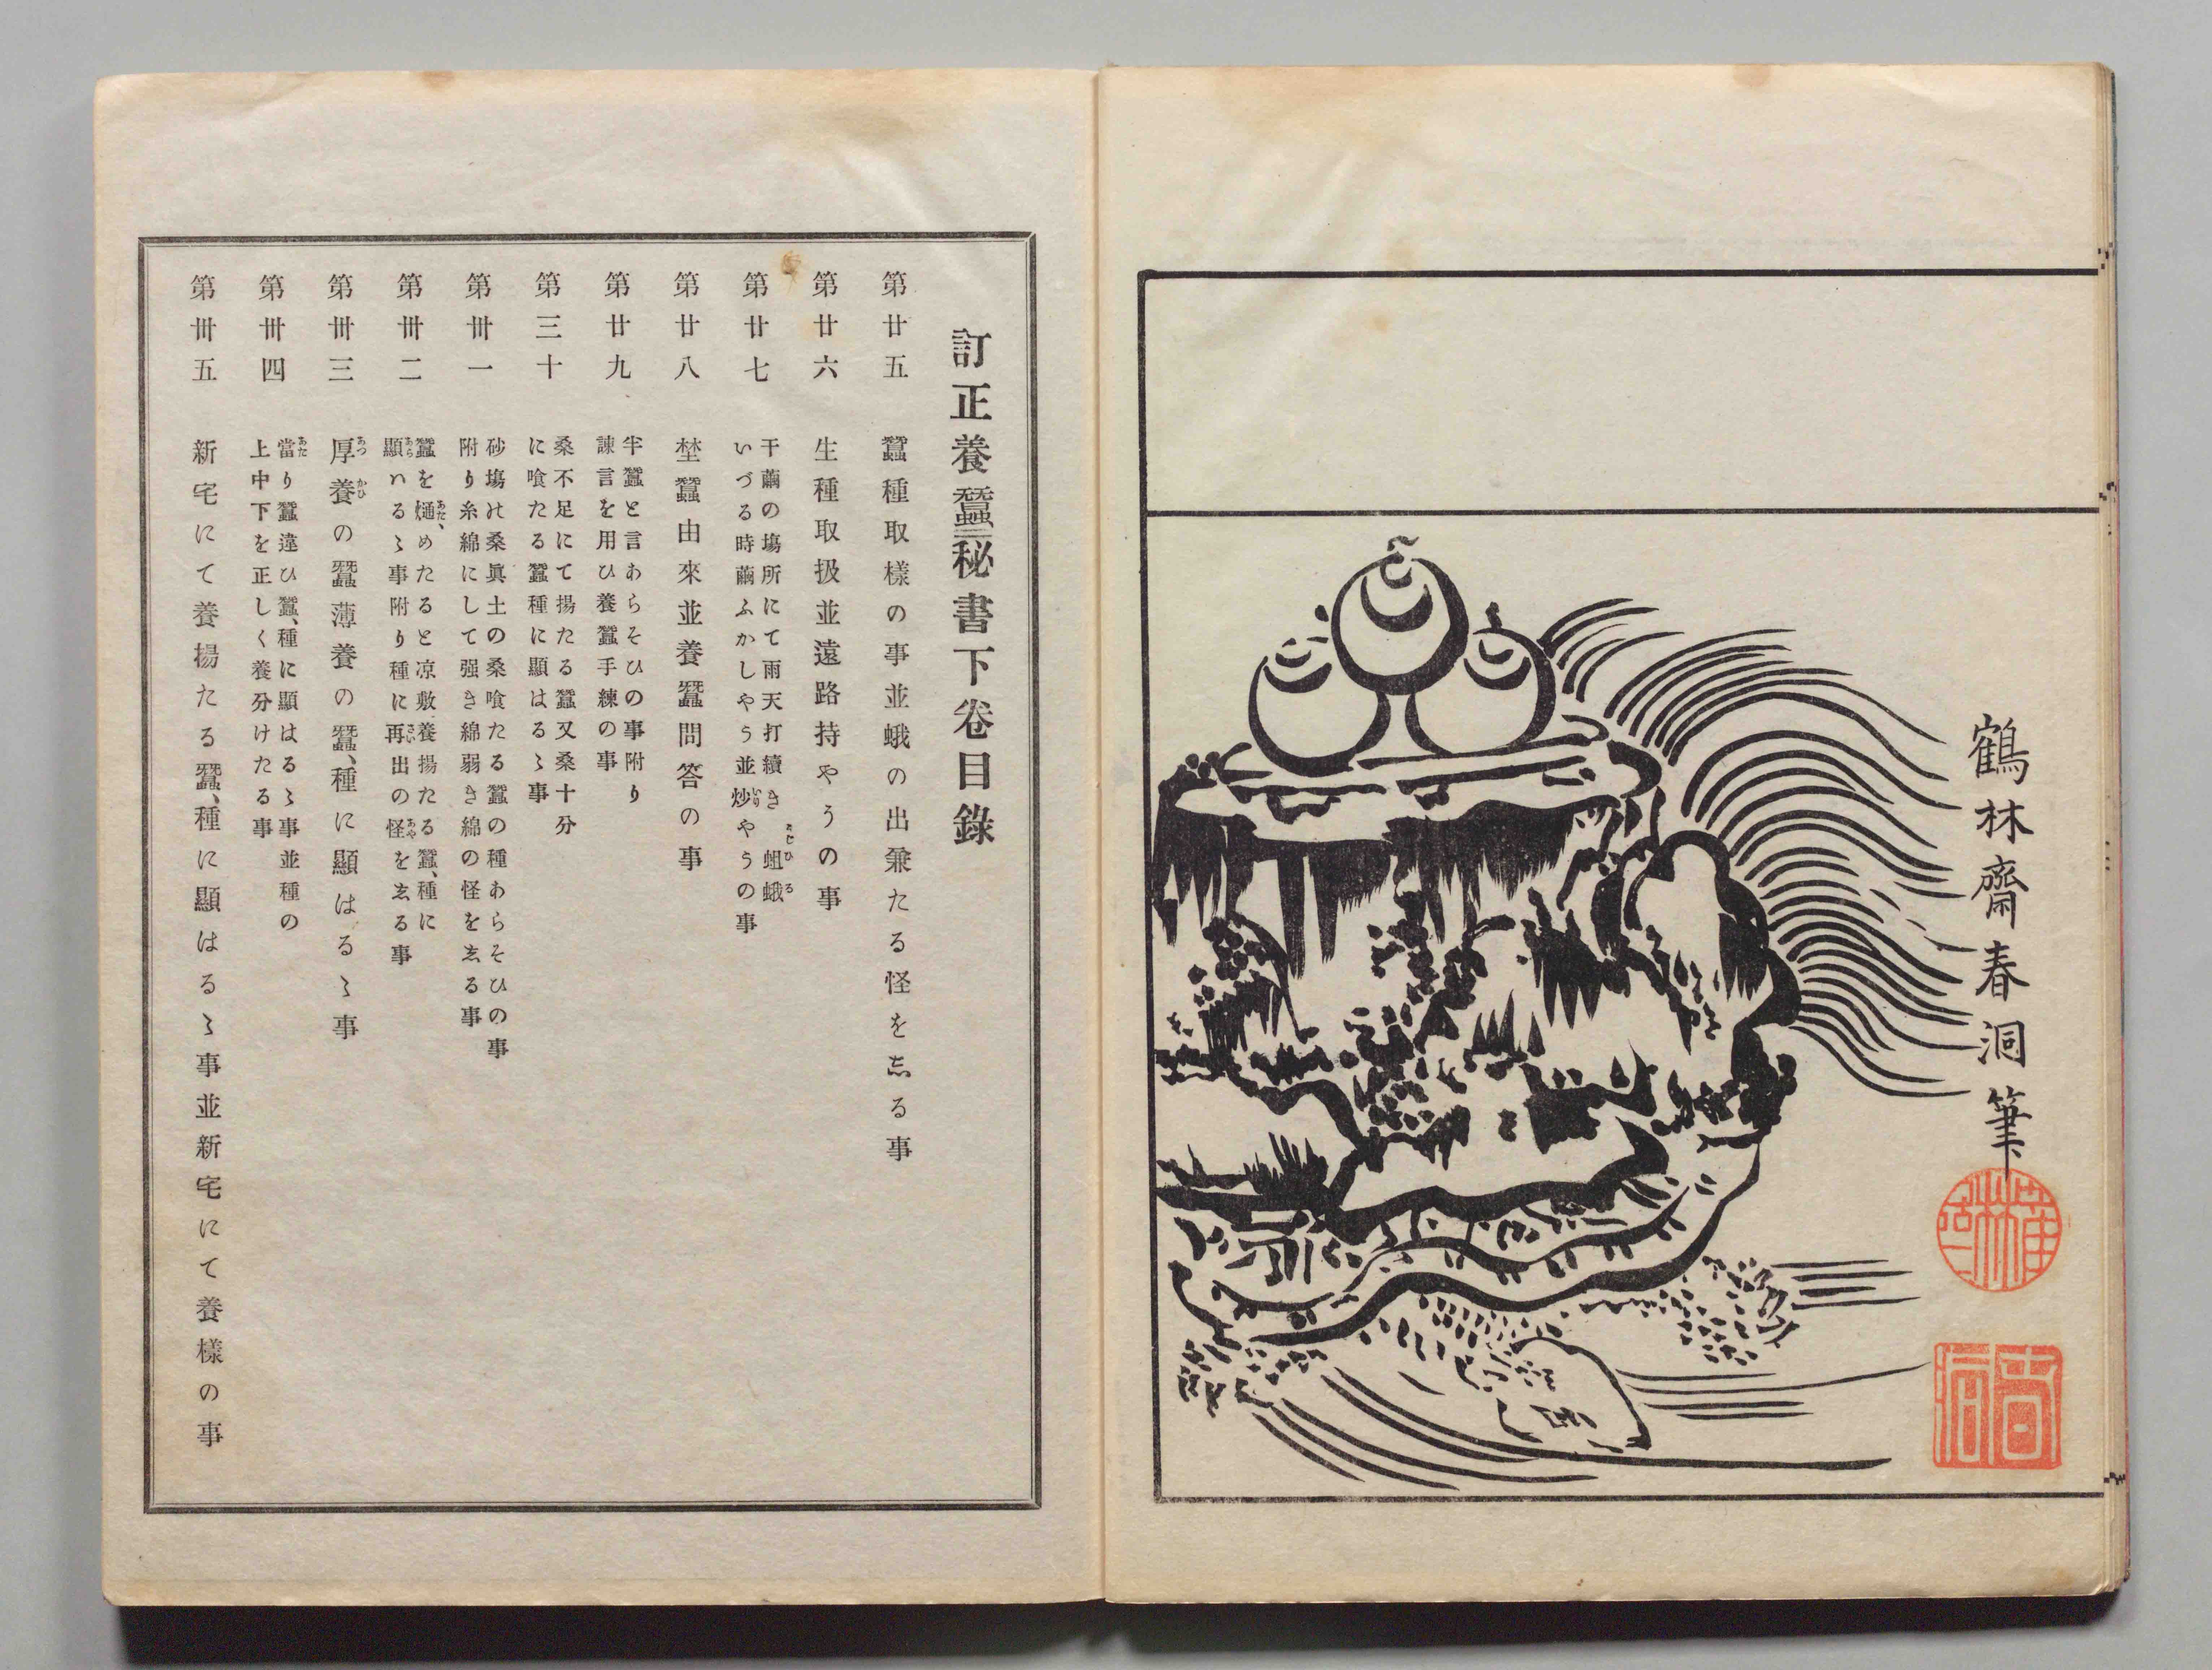 鶴林齋春洞筆
訂正養蠶秘書下卷目錄
第廿五 蠶種取樣の事並蛾の出兼たる怪を志る事
第廿六 生種取扱並遠路持やうの事
第廿七 干繭の塲所にて雨天打續き蛆蛾
いづる時繭ふかしやう並炒やうの事
第廿八 埜蠶由來並養蠶問答の事
第廿九 半蠶と言あらそひの事附り
諫言を用ひ養蠶手練の事
第三十 桑不足にて揚たる蠶又桑十分
に喰たる蠶種に顯はるゝ事
第卅一 砂塲の桑眞土の桑喰たる蠶の種あらそひの事
附り糸綿にして强き綿弱き綿の怪をゑる事
第卅二 蠶をめたると凉敷養揚たる蠶種に
顯ハるゝ事附り種に再出の怪をゑる事
第卅三 厚養の蠶薄養の蠶種に顯はるゝ事
第卅四 當り蠶違ひ蠶種に顯はるゝ事並種の
上中下を正しく養分けたる事
第卅五 新宅にて養揚たる蠶種に顯はるゝ事並新宅にて養樣の事